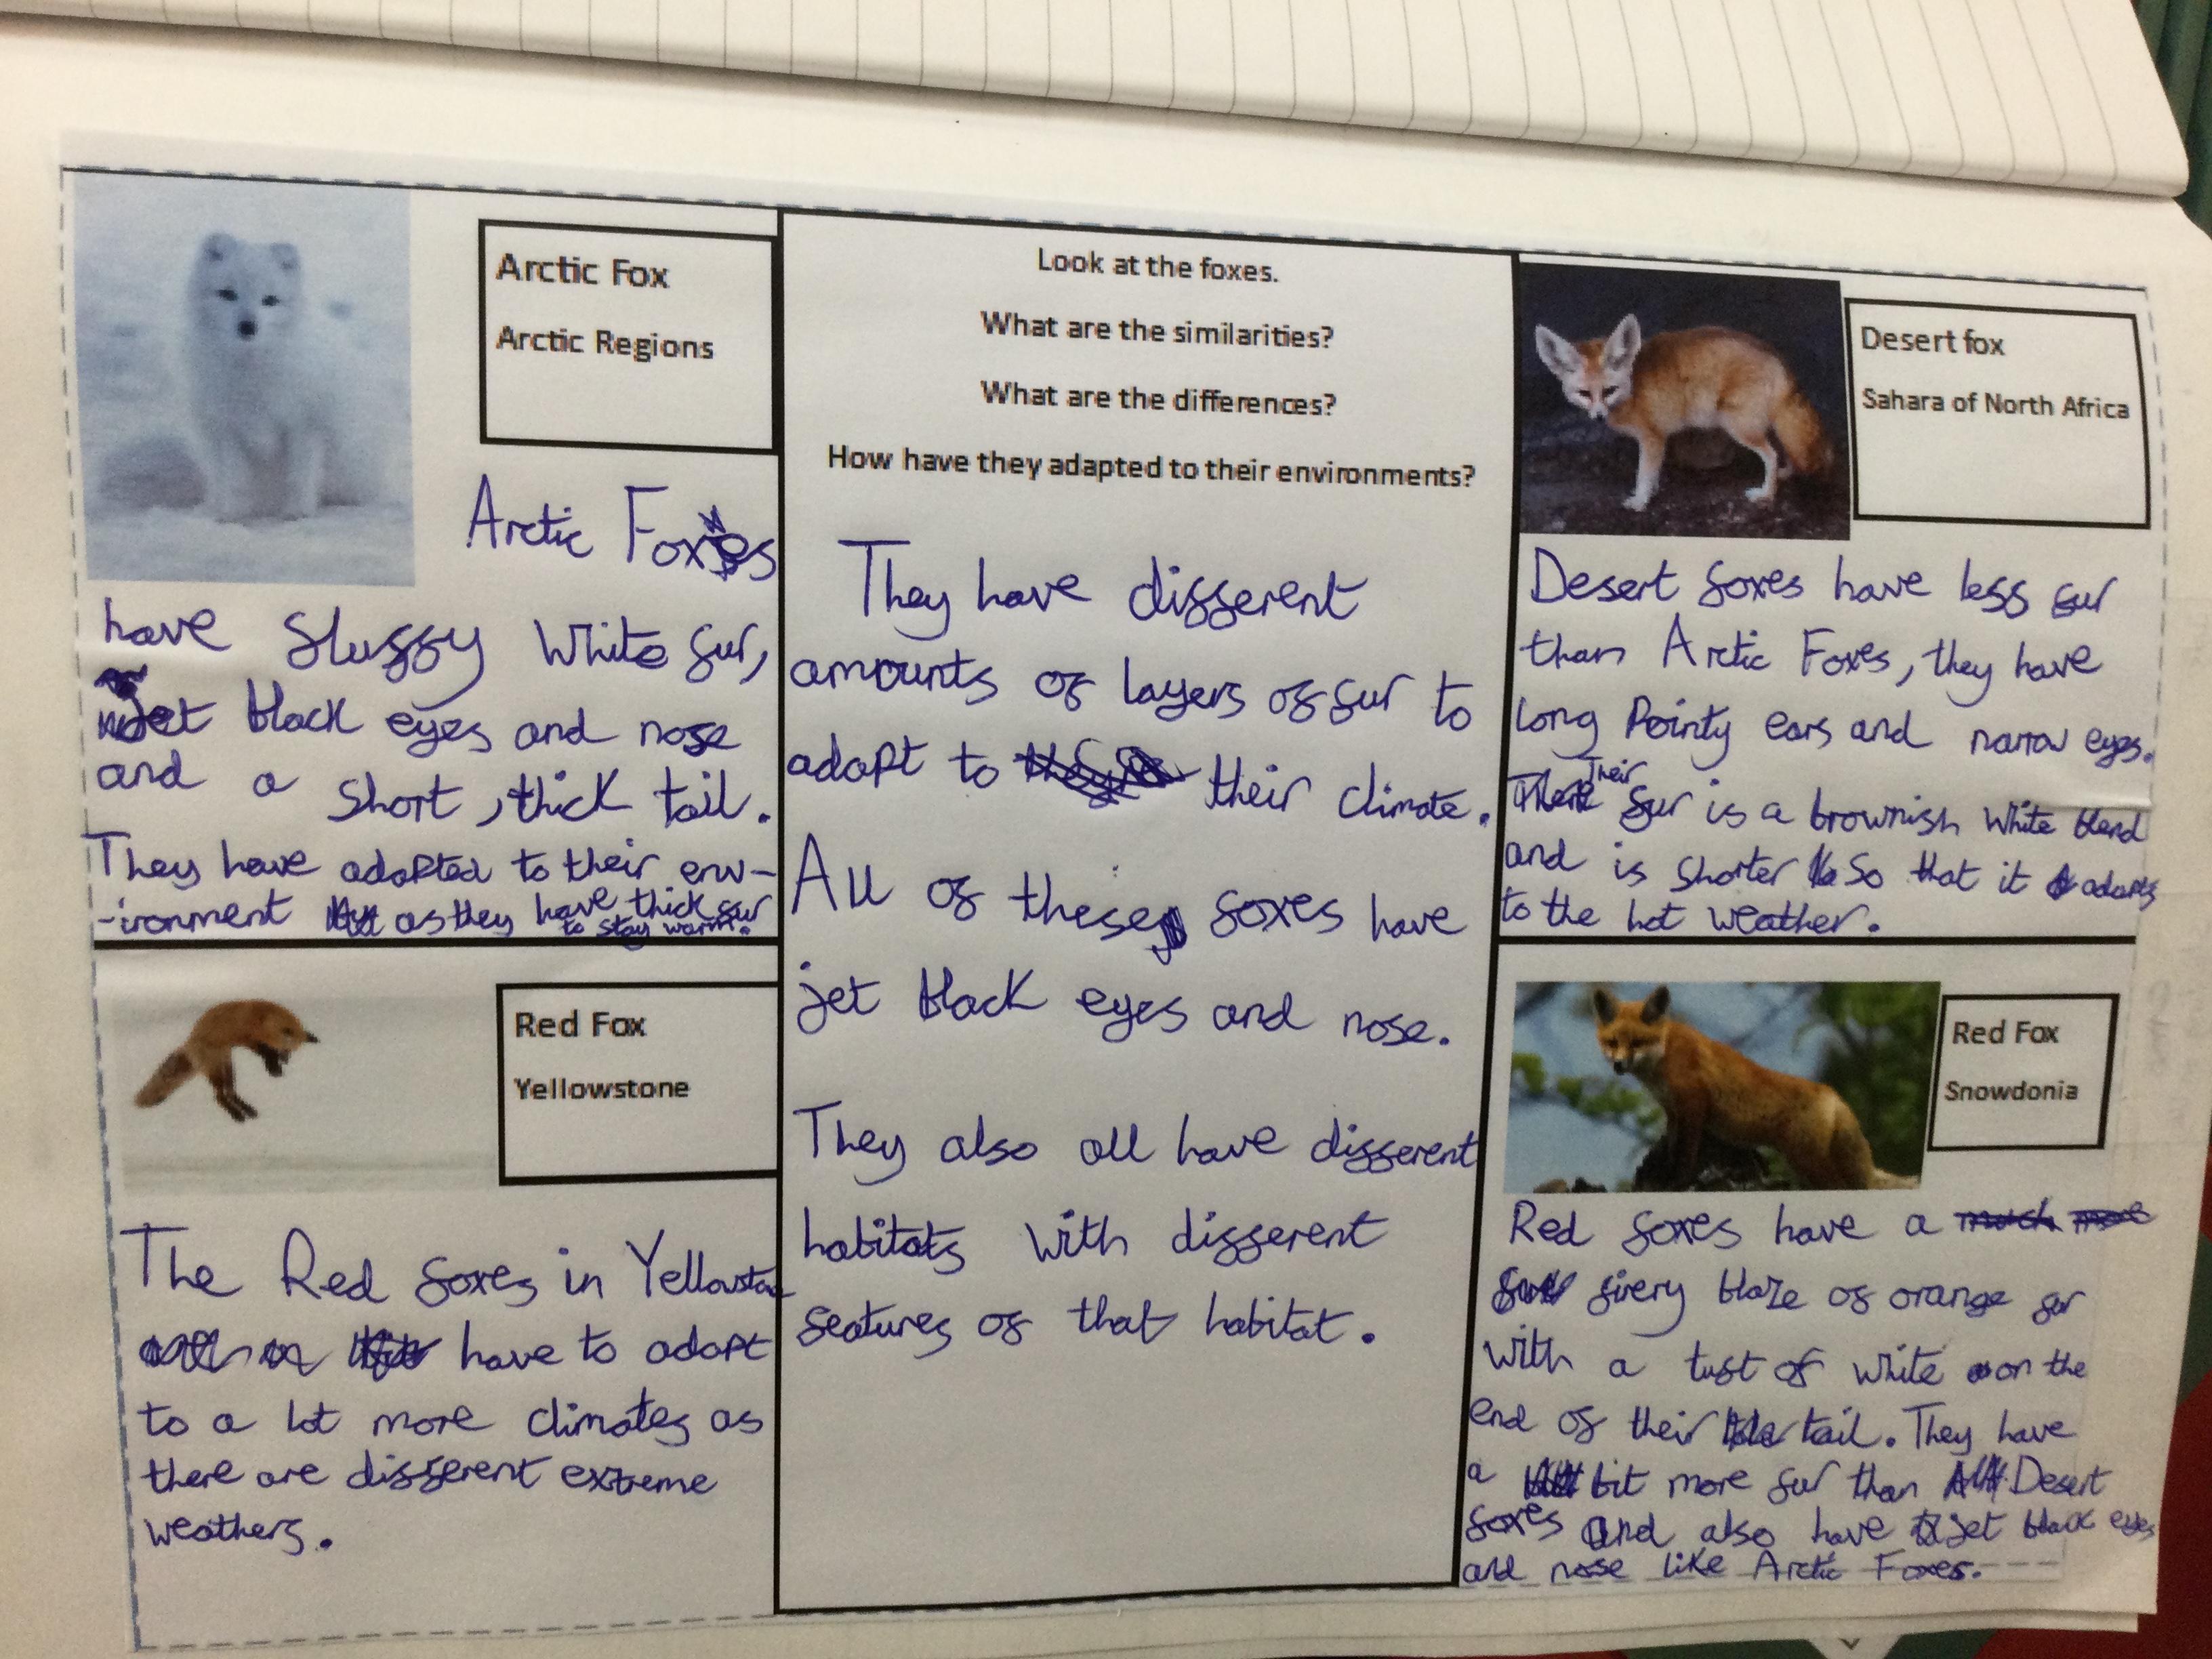 Arctic Fox
Arctic Regions
Arctic Foxes
have fluffy white fur,
jet black eyes and nose
and a short, thick tail.
They have adapted to their env-
-ironment as they have thick fur
to stay warm.
Look at the foxes.
What are the similarities?
What are the differences?
How have they adapted to their environments?
They have different
amounts of layers of fur to
adapt to their climate.
All of these foxes have
jet black eyes and nose.
They also all have different
habitats with different
features of that habitat.
Desert fox
Sahara of North Africa
Desert foxes have less fur
than Arctic Foxes, they have
long pointy ears and narrow eyes.
Their fur is a brownish white blend
and is shorter so that it adapts
to the hot weather.
Red Fox
Yellowstone
The Red foxes in Yellowstone
have to adapt
to a lot more climates as
there are different extreme
weathers.
Red Fox
Snowdonia
Red foxes have a
firery blaze of orange fur
with a tuft of white on the
end of their tail. They have
a bit more fur than Desert
foxes and also have jet black eyes
and nose like Arctic Foxes.